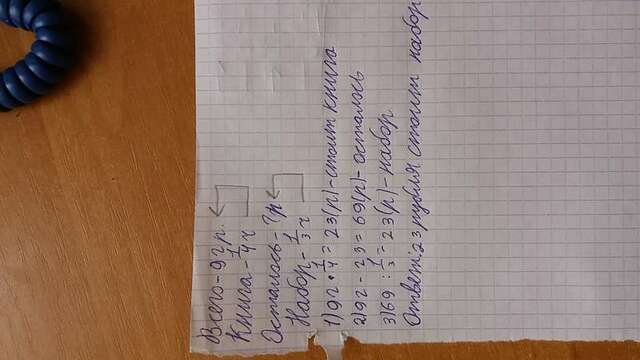 Всего - 92 р.
Книга - 1/4 ч
Осталось - ? р
Набор - 1/3 ч
1) 92 • 1/4 = 23(р) - стоит книга
2) 92 - 23 = 69(р) - осталось
3) 69 : 1/3 = 23(р) - набор
Ответ: 23 рубля стоит набор